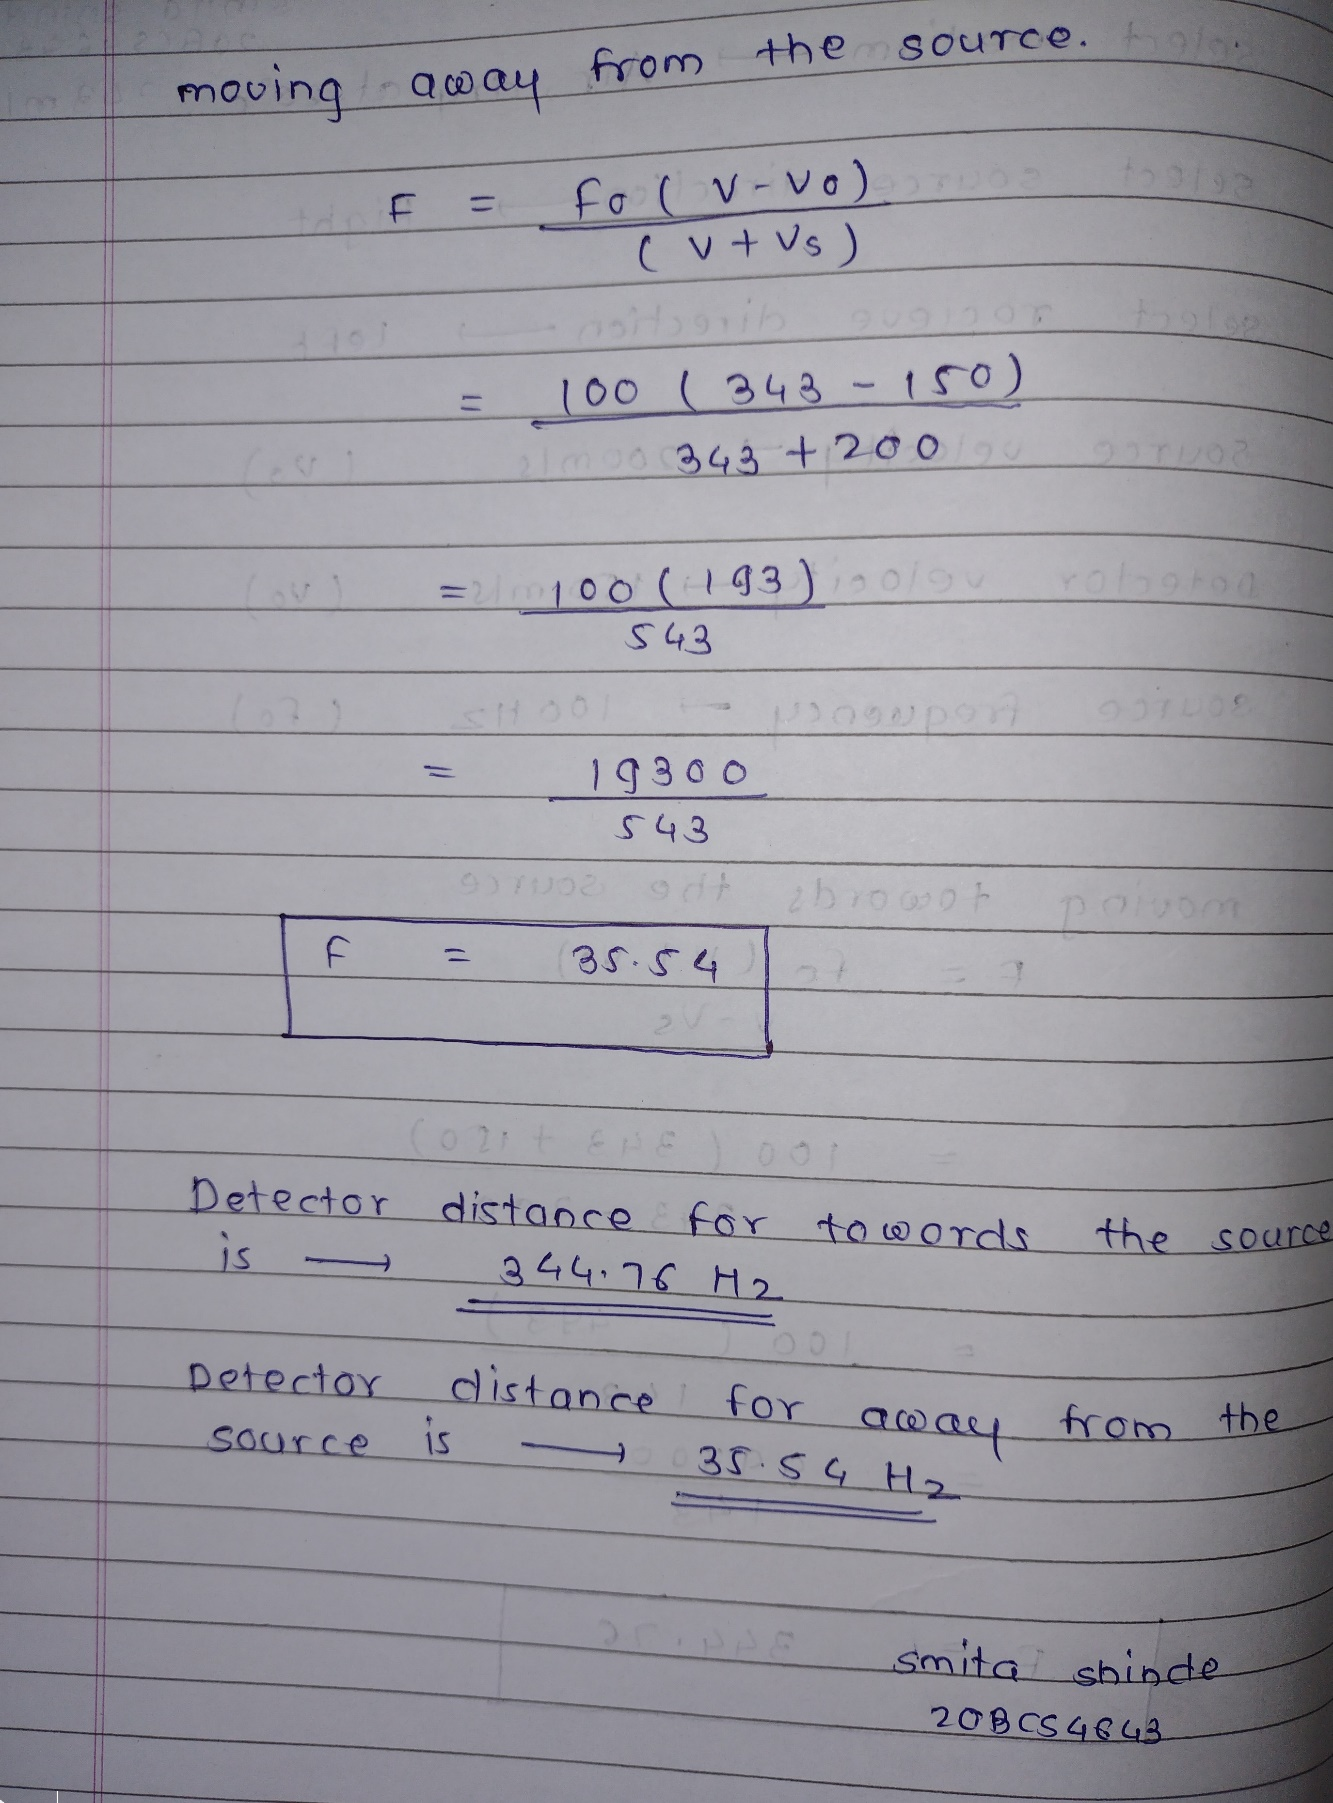 moving away from the source.
F = fo ( v - vo )
( v + vs )
= 100 ( 343 - 150 )
343 + 200
= 100 ( 193 )
543
= 19300
543
f = 35.54
Detector distance for towords the source
is → 344.76 Hz
Detector distance for away from the
source is → 35.54 Hz
smita shinde
20BCS4643